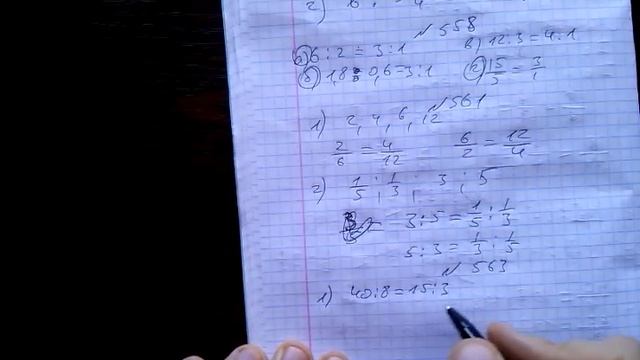 2) 6 : 4
N 558
а) 6 : 2 = 3 : 1
в) 12 : 3 = 4 : 1
б) 1,8 : 0,6 = 3 : 1
г) 15/5 = 3/1
N 561
1) 2, 4, 6, 12
2/6 = 4/12 6/2 = 12/4
2) 1/5 ; 1/3 ; 3 ; 5
3 : 5 = 1/5 : 1/3
5 : 3 = 1/3 : 1/5
N 563
1) 40 : 8 = 15 : 3